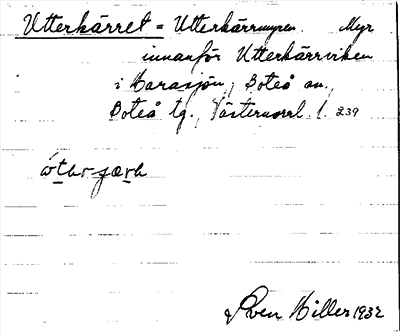 Utterkärret = Utterkärrmyren. Myr
innanför Utterkärrviken
i Marasjön, Boteå sn.,
Boteå tg., Västernorrl. l. 239
Sven Hiller 1932